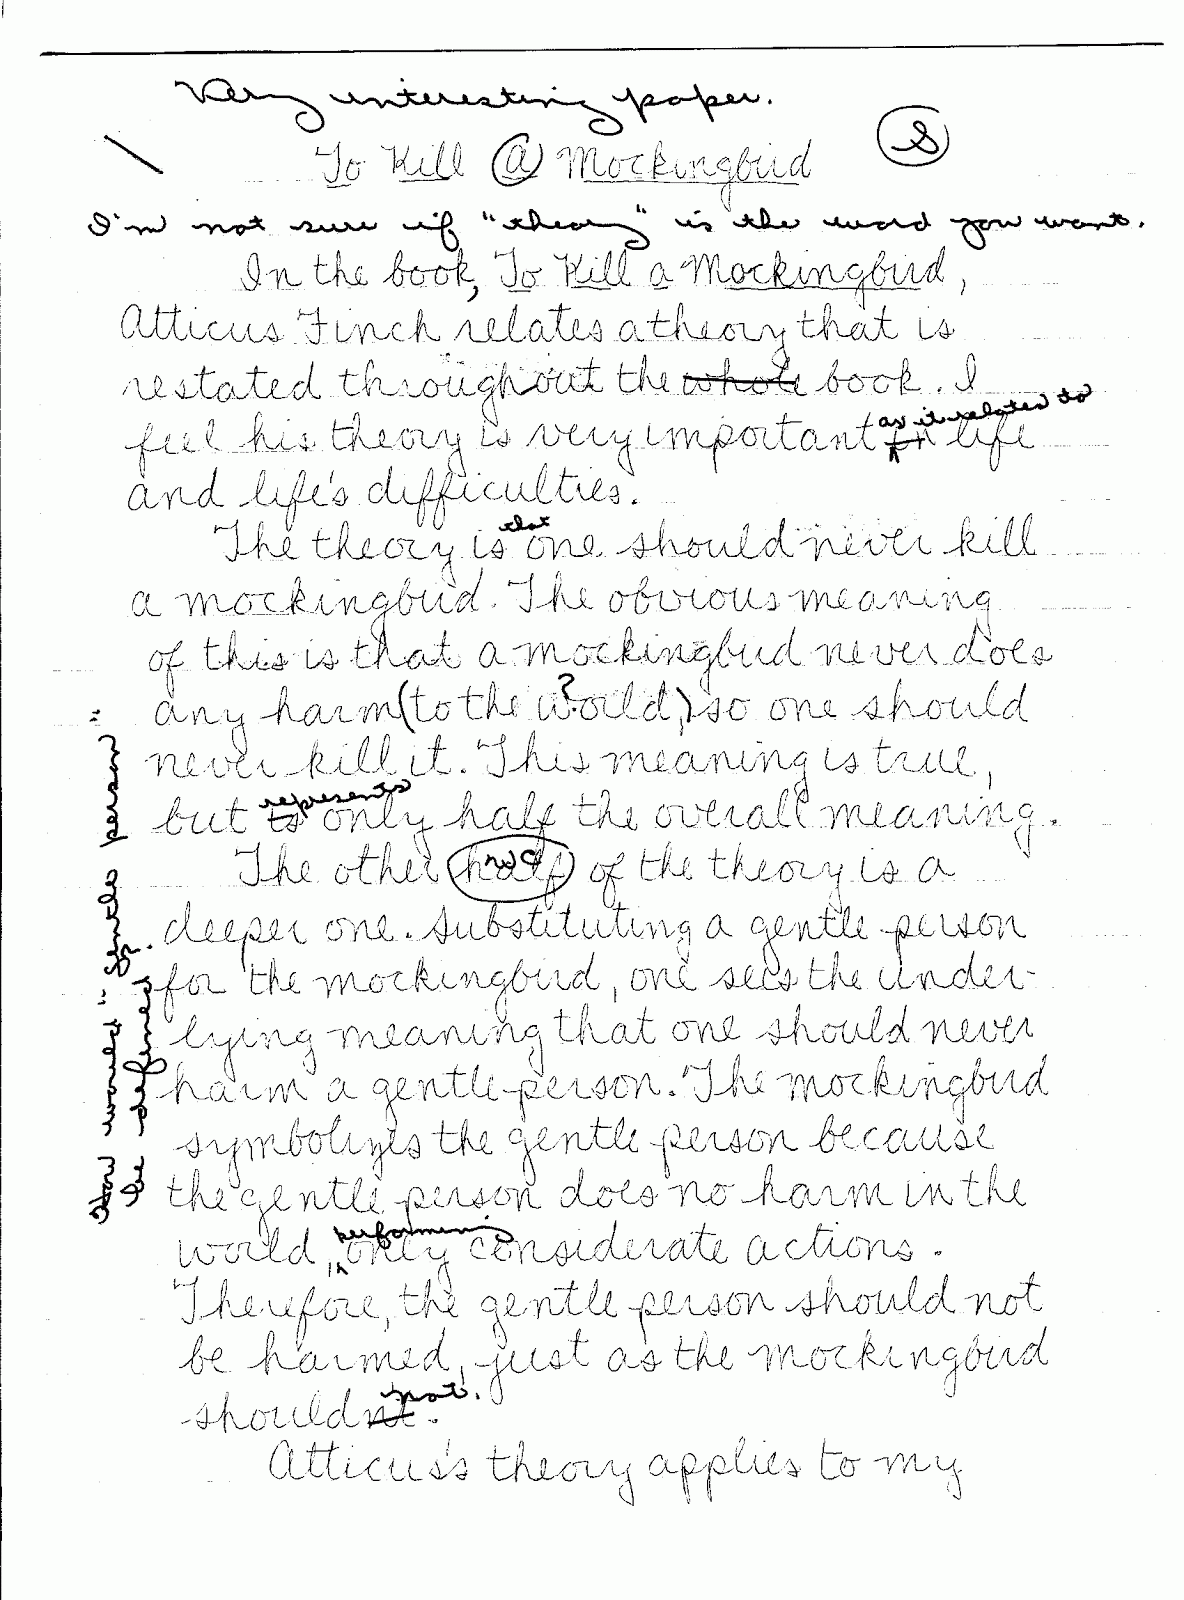 Very interesting paper.
S
To Kill a Mockingbird
I'm not sure if "theory" is the word you want.
In the book, To Kill a Mockingbird,
Atticus Finch relates a theory that is
restated throughout the whole book. I
as it relates to
feel his theory is very important in life
and life's difficulties.
that
The theory is one should never kill
a mockingbird. The obvious meaning
of this is that a mockingbird never does
?
any harm (to the world,) so one should
never kill it. This meaning is true,
represents
but is only half the overall meaning.
The other half of the theory is a
deeper one. Substituting a gentle person
for the mockingbird, one sees the under-
lying meaning that one should never
harm a gentle person. The mockingbird
symbolizes the gentle person because
the gentle person does no harm in the
performing
world, only considerate actions.
Therefore, the gentle person should not
be harmed, just as the mockingbird
not.
shouldn't.
Atticus's theory applies to my
How would "gentle person"
be defined?